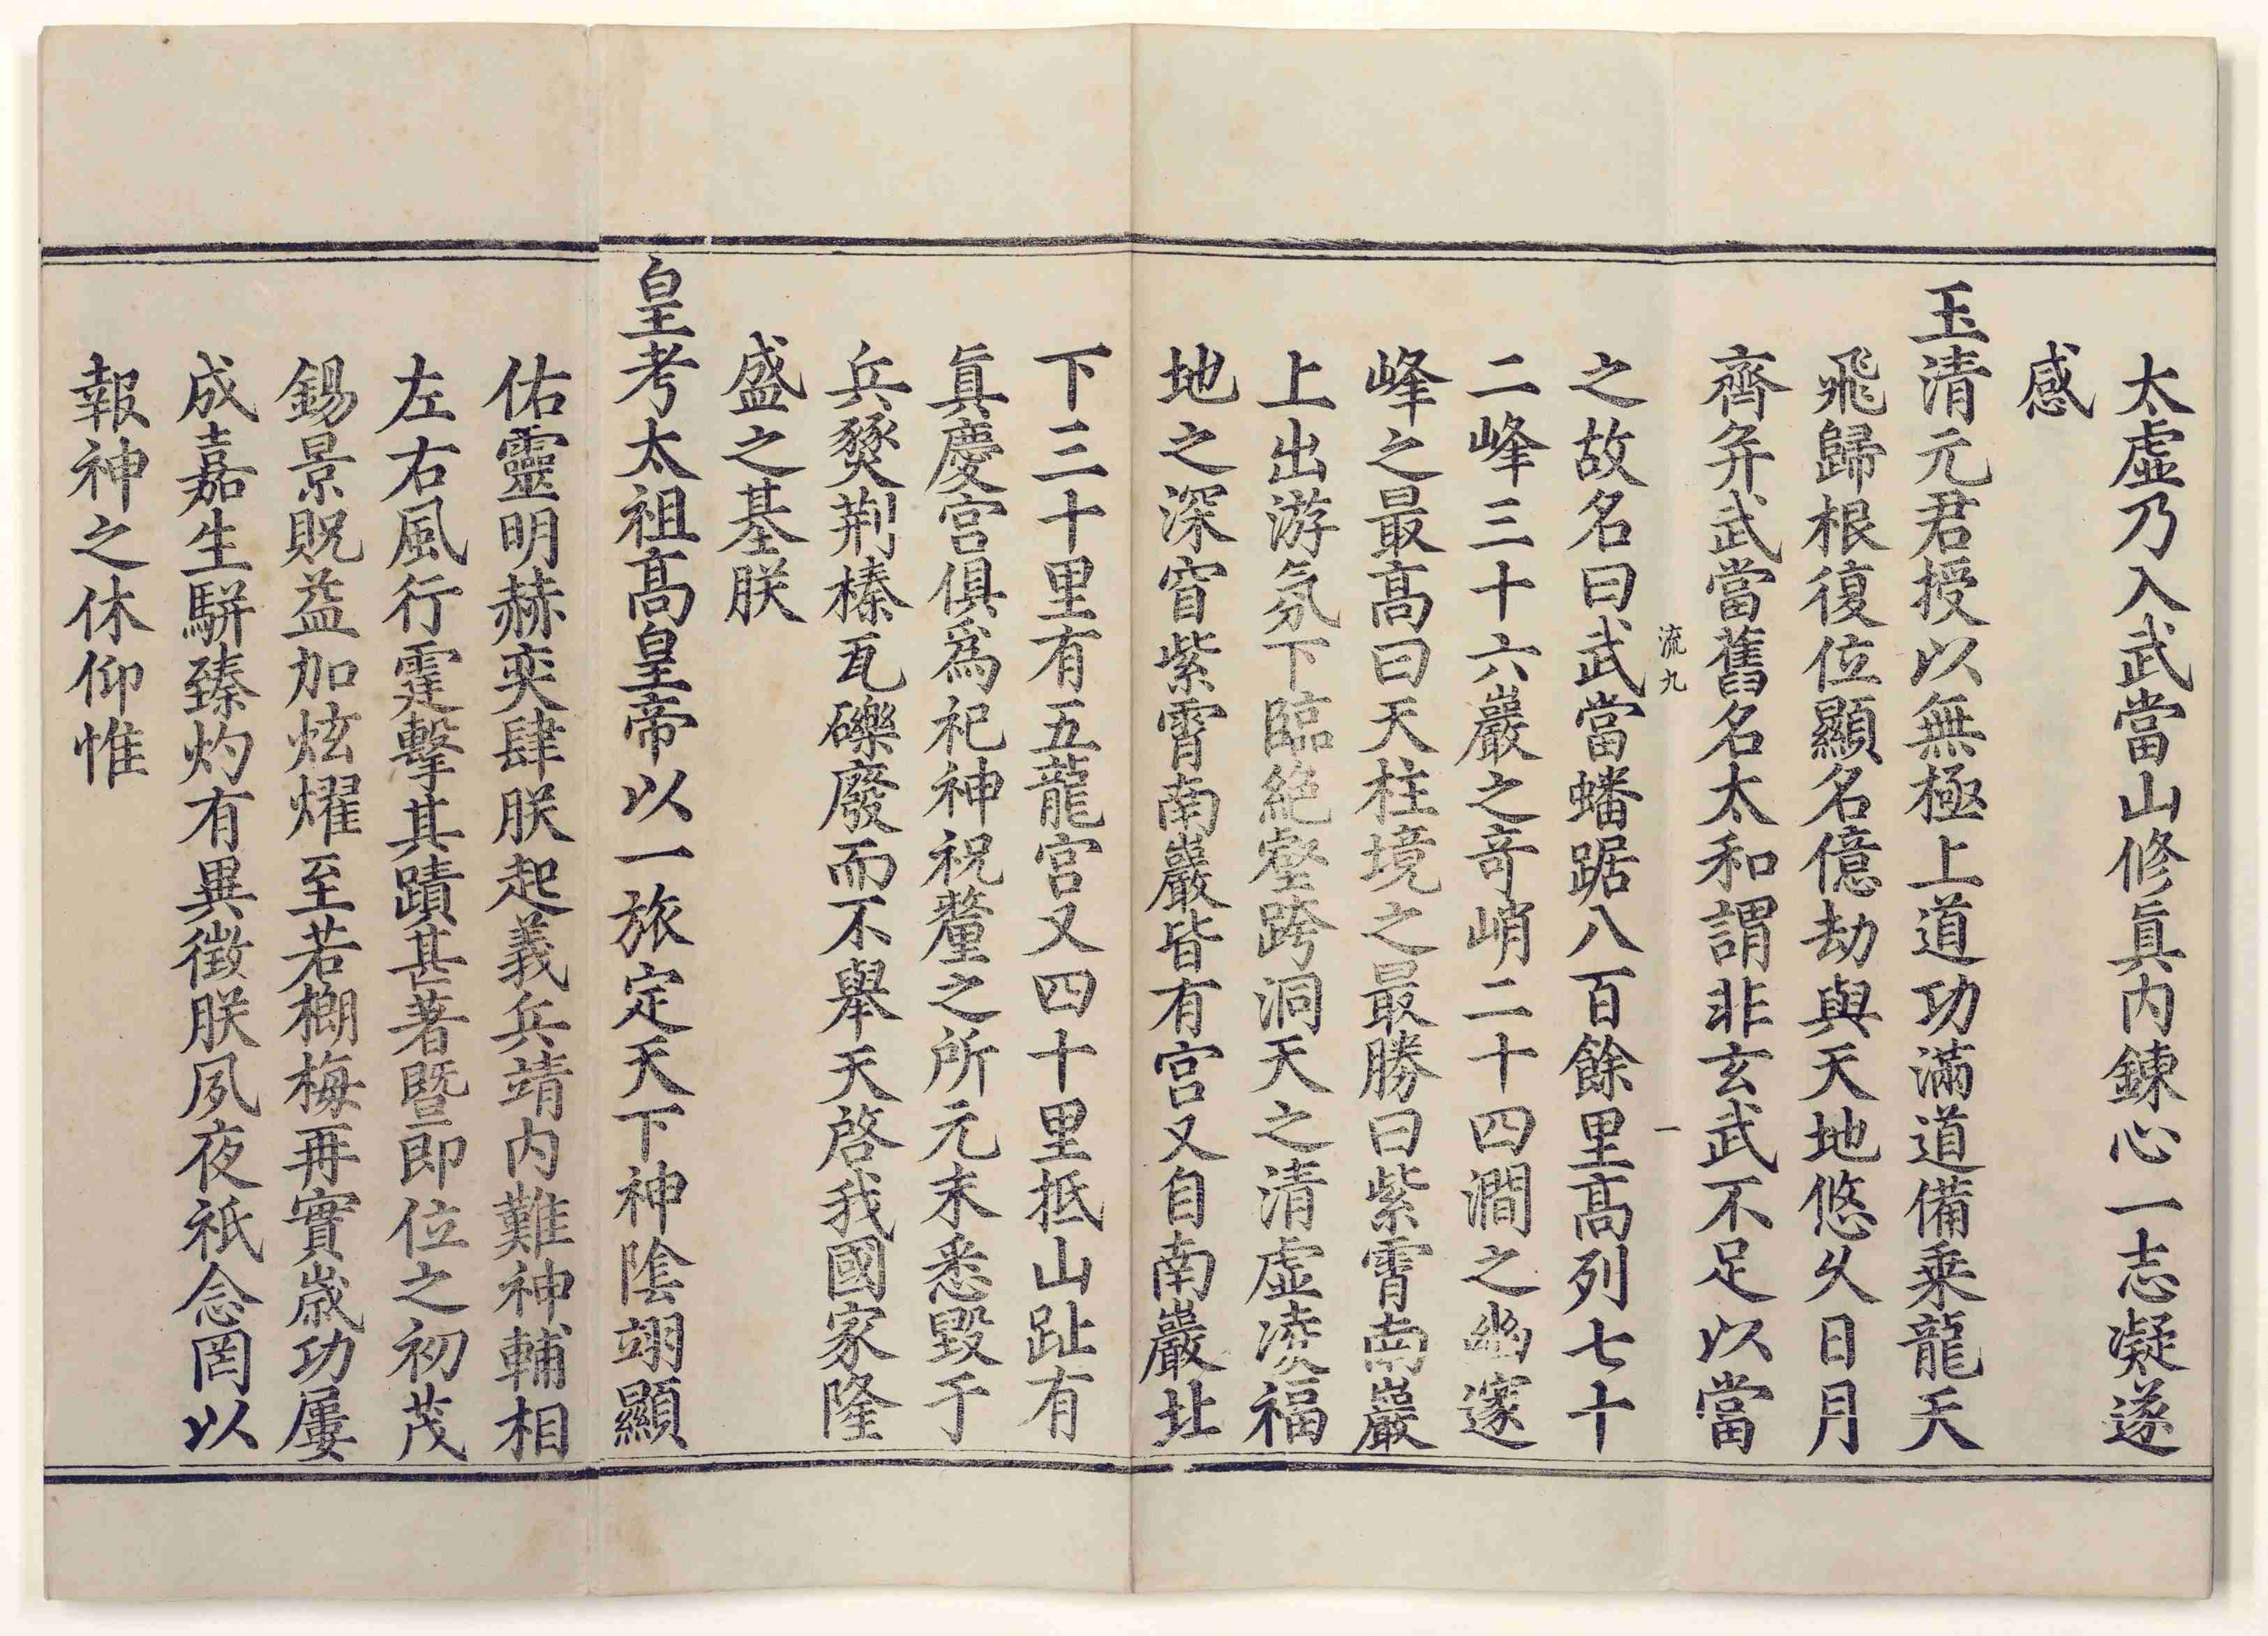 太虛乃入武當山修眞内鍊心一志凝遂
感
玉清元君授以無極上道功滿道備乗龍天
飛歸根復位顯名億劫與天地悠久日月
齊并武當舊名太和謂非玄武不足以當
流九
一
之故名曰武當蟠踞八百餘里髙列七十
二峰三十六巖之奇峭二十四澗之幽邃
峰之最髙曰天柱境之最勝曰紫霄南巖
上出游氛下臨絶壑跨洞天之清虛凌福
地之深窅紫霄南巖皆有宫又自南巖北
下三十里有五龍宫又四十里抵山趾有
眞慶宫俱爲祀神祝釐之所元末悉毀于
兵燹荆榛瓦礫廢而不舉天啓我國家隆
盛之基朕
皇考太祖髙皇帝以一旅定天下神隂翊顯
佑靈明赫奕肆朕起義兵靖内難神輔相
左右風行霆擊其蹟甚著暨即位之初茂
錫景貺益加炫燿至若榔梅再實嵗功屢
成嘉生駢臻灼有異徴朕夙夜祗念罔以
報神之休仰惟